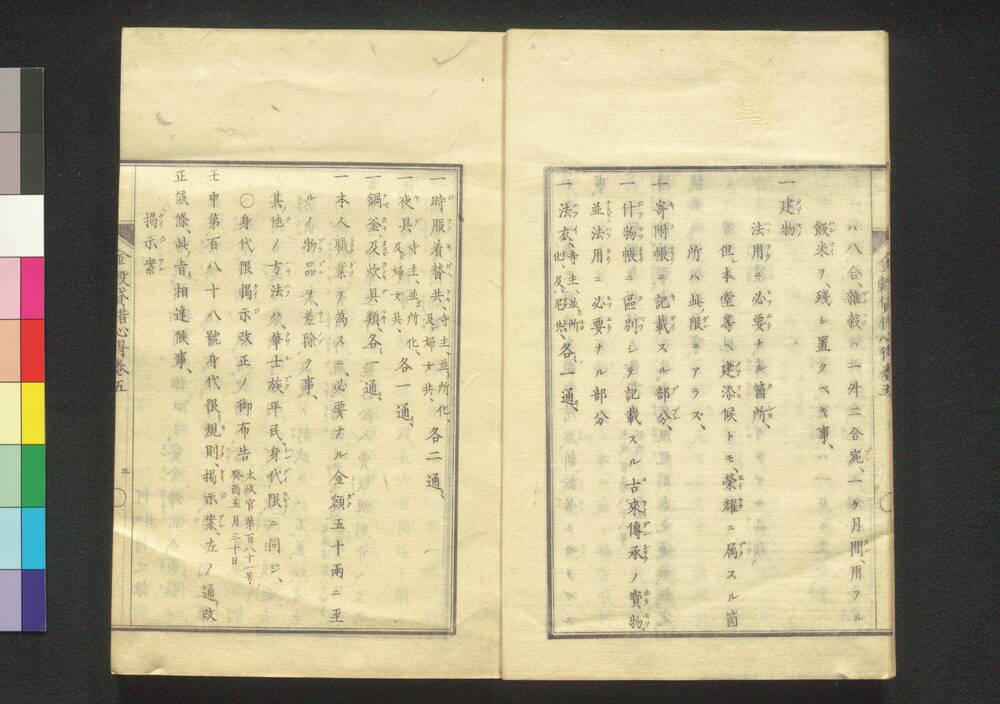 ハ八合、雜穀ハ一外二合宛、一ヶ月間、用フル
飯米ヲ、殘シ置クベキ事、
一建物
法用ニ必要ナル箇所、
但、本堂等ヘ建添候トモ、榮耀ニ属スル箇
所ハ此限ニアラズ、
一寄附帳ニ記載スル部分、
一什物帳ニ區別シテ記載スル古來傳承ノ寶物、
並法用ニ必要ナル部分
一法衣、寺主、並所化、及尼共、各一通、
一時服着替共、寺主、並所化、及婦女共、各二通、
一夜具、寺主、並所化、及婦女共、各一通、
一鍋釜及炊具類、各一通、
一本人職業ヲ為スニ必要ナル金額五十兩ニ至
ルノ物品ヲ差除ク事、
其他ノ方法ハ、華士族平民、身代限ニ同ジ、
〇身代限揭示改正ノ御布告 太政官第百八十一号
癸酉五月三十日
壬申第百八十八號身代限規則、揭示案、左ノ通改
正候條、此旨相達候事、
揭示案
金穀貸借心得卷五
三